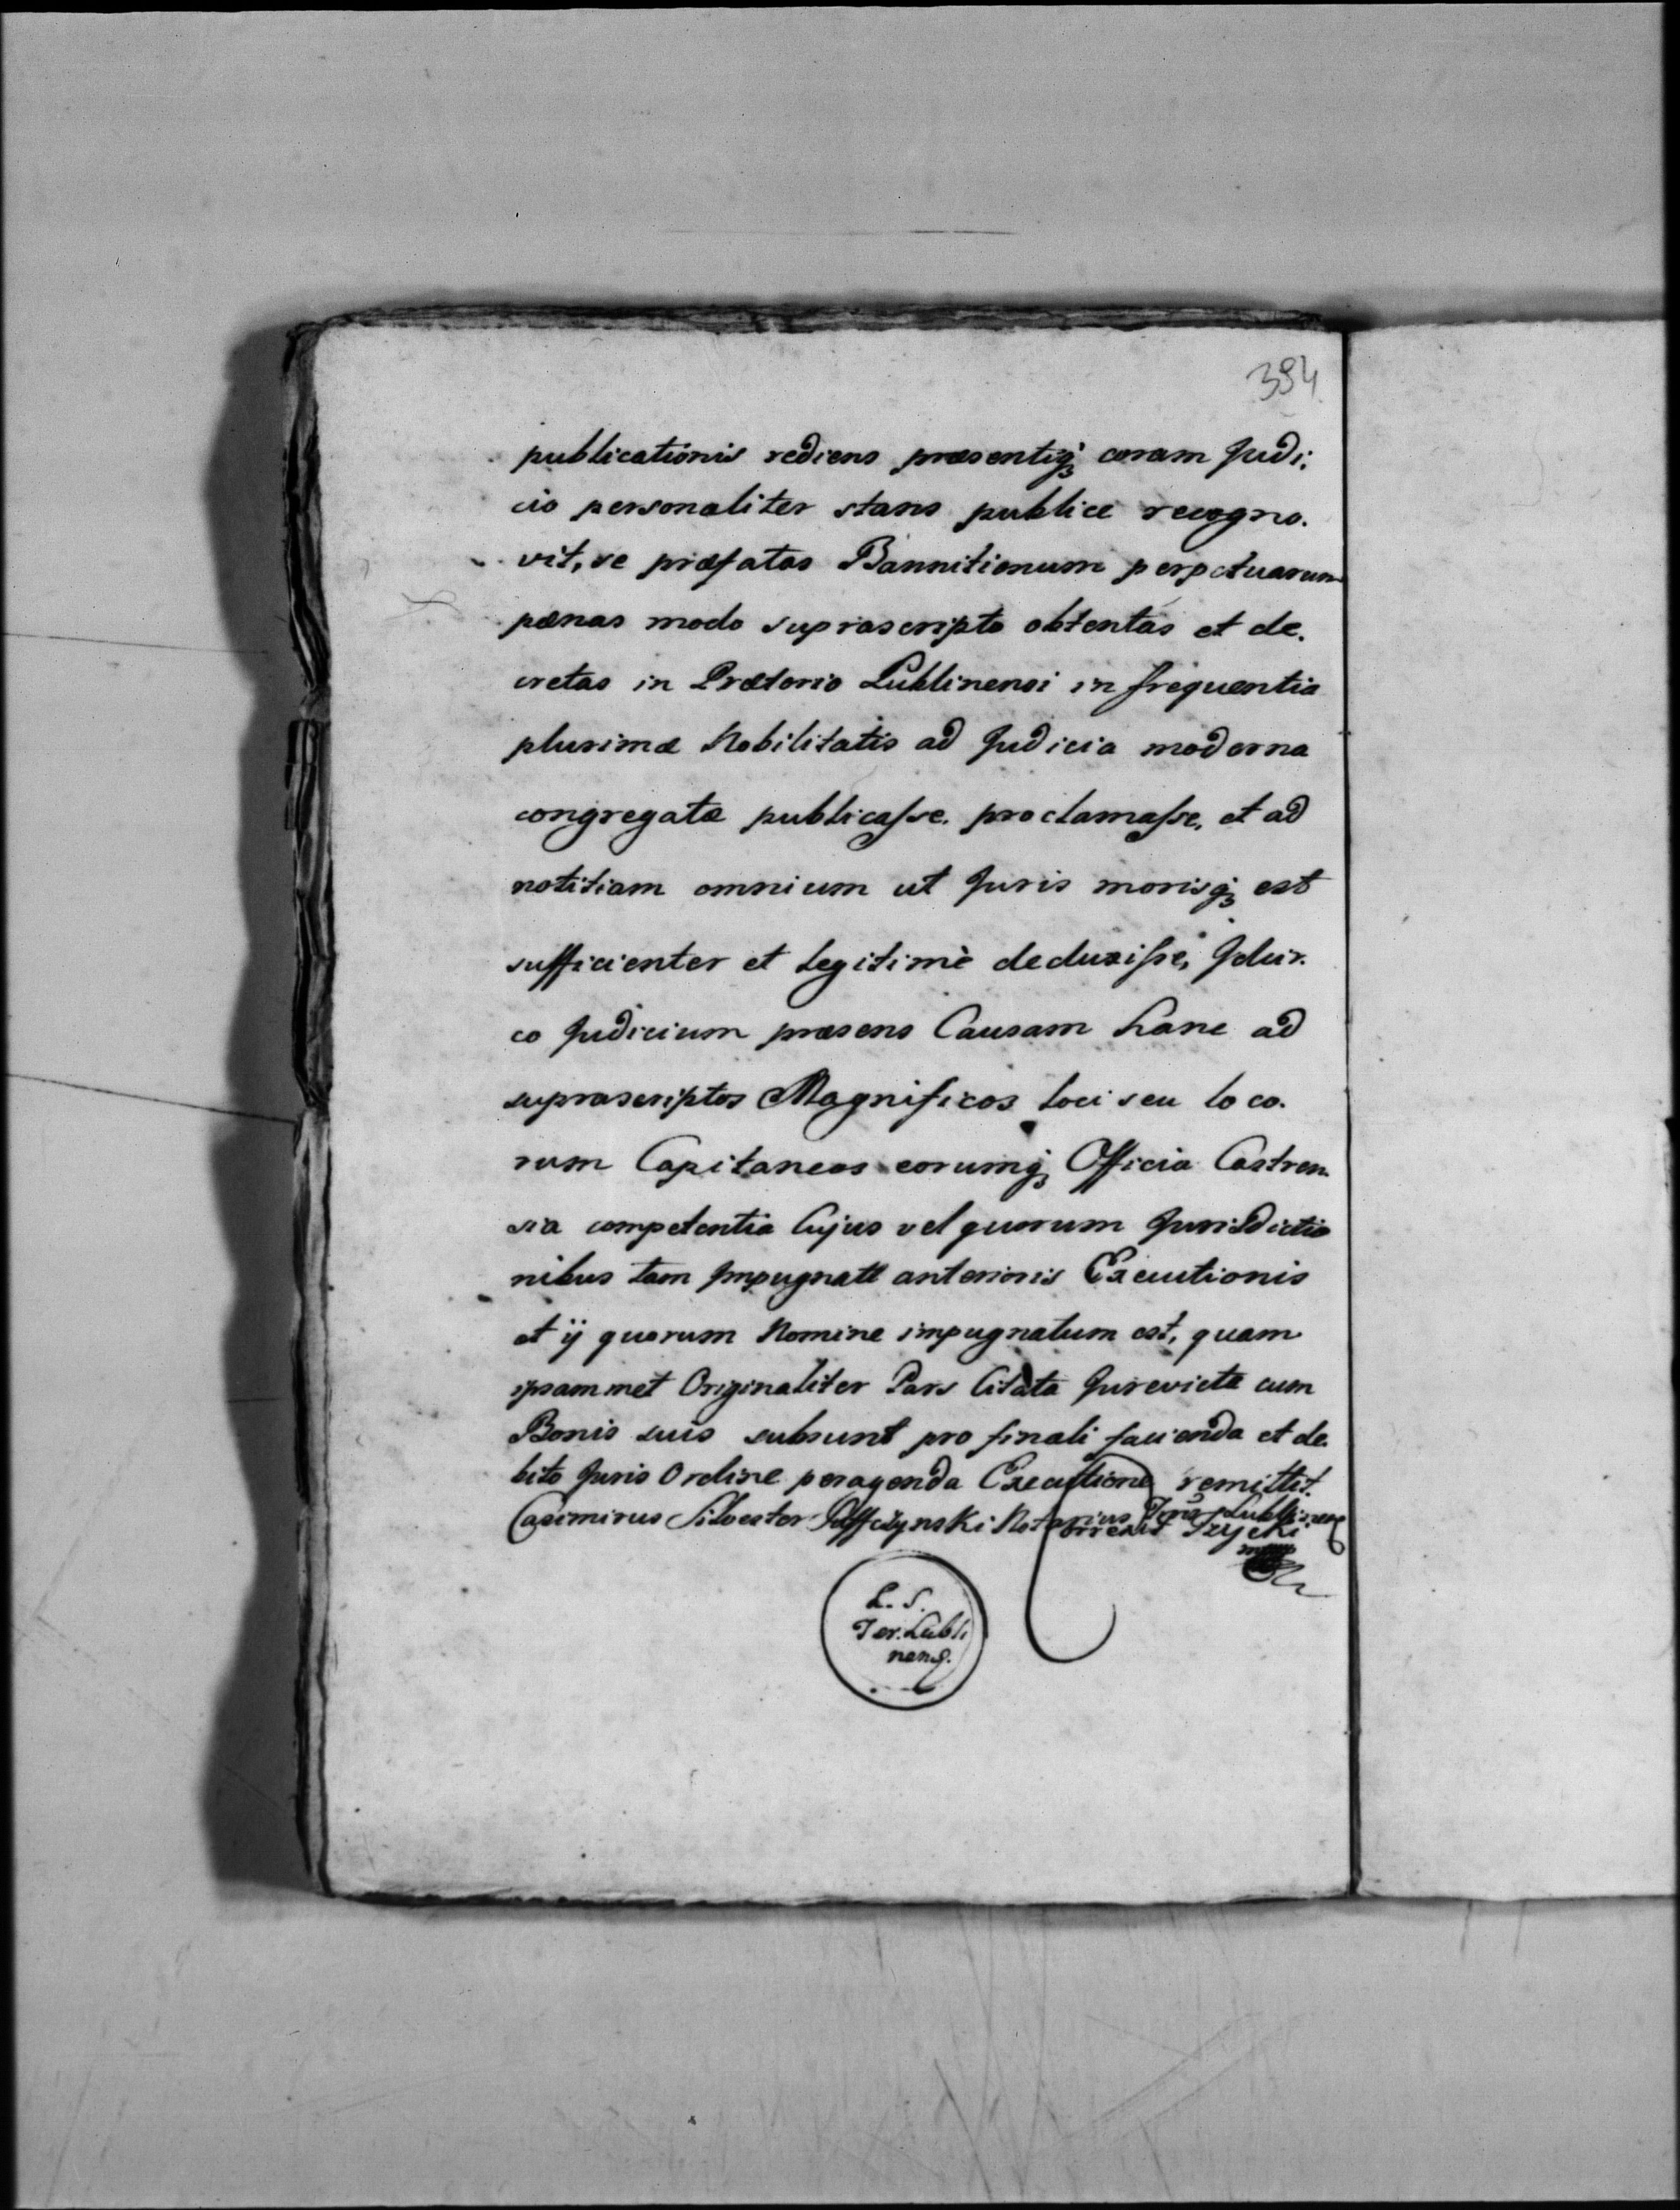 394
publicationis rediens præsentiq3 coram Judi:
cio personaliter stans publice recogno.
vit, se præfatas Bannitionum perpetuarum
pænas modo suprascripto obtentas et de.
cretas in Prætorio Lublinensi in frequentia
plurimæ Nobilitatis ad Judicia moderna
congregatæ publicaſse, proclamaſse, et ad
notitiam omnium ut Juris morisq3 est
sufficienter et legitimè deduxiſse, Idcir.
co Judicium præsens Causam hanc ad
suprascriptos Magnificos loci seu loco.
rum Capitaneos eorumq3 Officia Castren.
sia competentia Cujus vel quorum Jurisdictio
nibus tam Impugnatt anterioris Executionis
et ij quorum Nomine impugnatum est, quam
ipsammet Originaliter Pars Citata Jurevicta cum
Bonis suis subsunt pro finali facienda et de.
bito Juris Ordine peragenda Executione remittit.
Casimirus Silvester Notarius Terris Lublinens
Correxit Trzycki
mpp
L. S.
Ter. Lubli
nens.